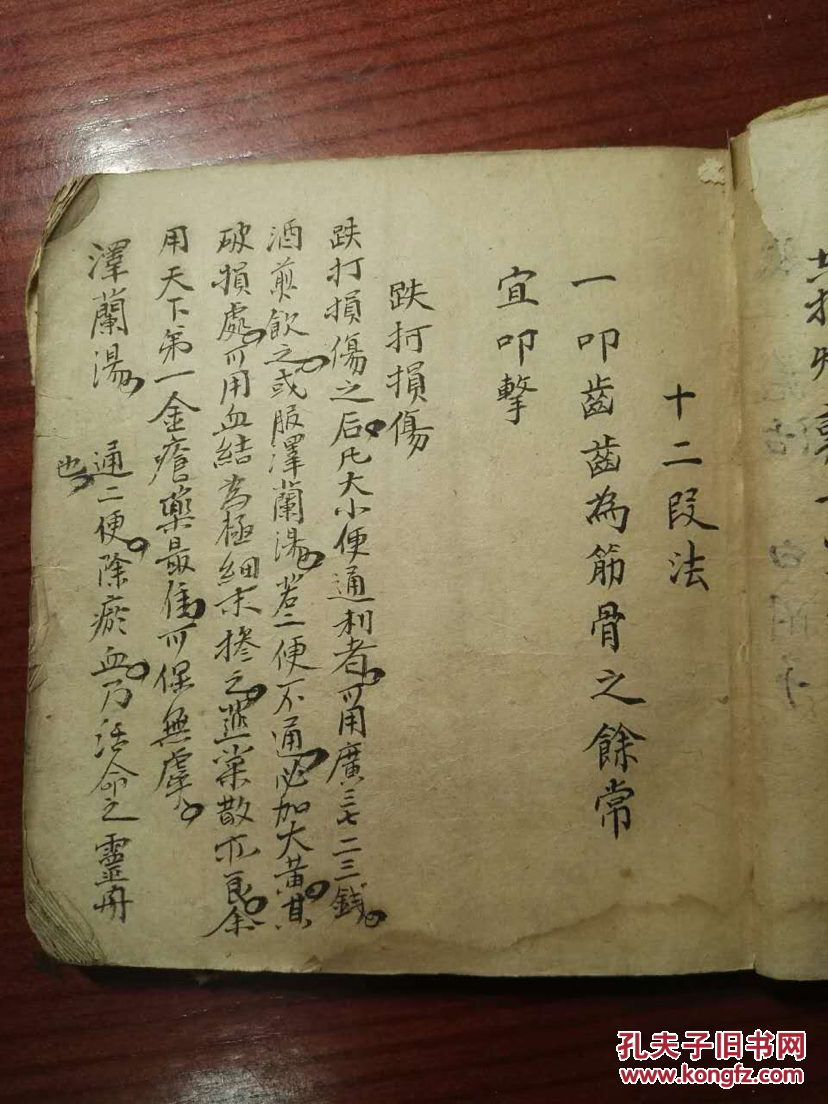 十二段法
一叩齒齒為筋骨之餘常
宜叩擊
跌打損傷
跌打損傷之后凡大小便通利者可用廣三七二三錢
酒煎飲之或服澤蘭湯若二便不通必加大黃其
破損處可用血結為極細末摻之葉散亦良余
用天下第一金瘡藥最佳可保無虞
澤蘭湯 通二便除瘀血乃活命之靈丹
也
孔夫子旧书网
www.kongfz.com